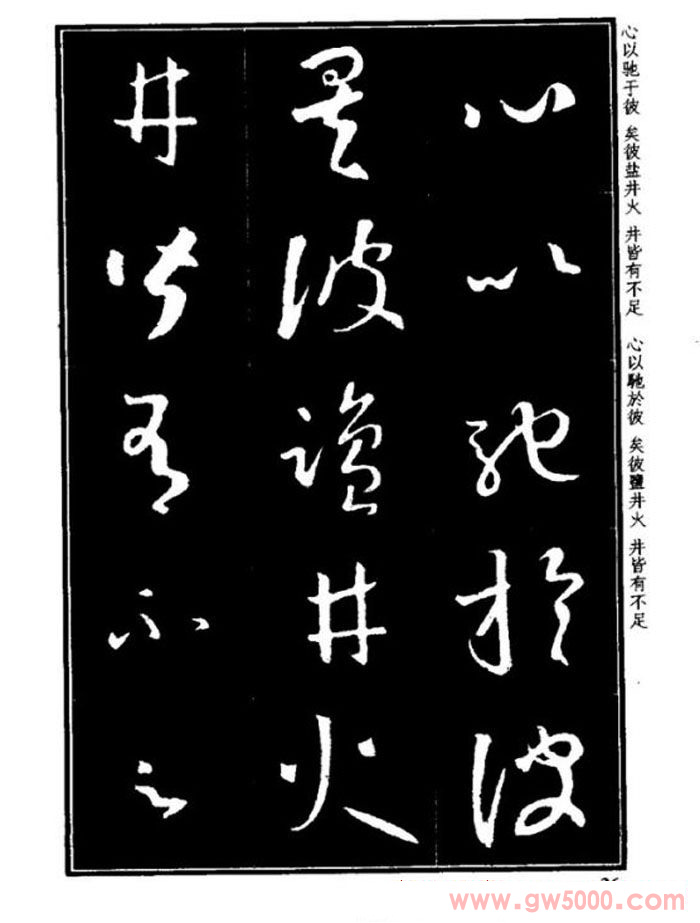 心以驰于彼 矣彼盐井火 井皆有不足
心以馳於彼 矣彼鹽井火 井皆有不足
心以馳於彼
矣彼鹽井火
井皆有不足
www.gw5000.com